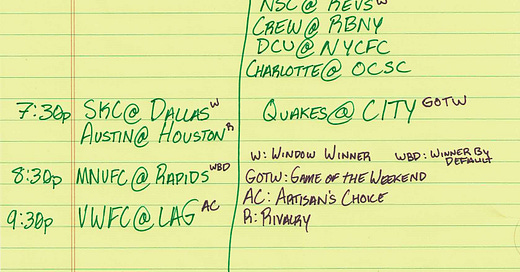 NSC@ REVS W
CREW@ RBNY
DCU@ NYCFC
CHARLOTTE@ OCSC
7:30p SKC@ DALLAS W QUAKES@ CITY GOTW
AUSTIN@ HOUSTON R
W: WINDOW WINNER WBD: WINNER BY DEFAULT
8:30p MNUFC@ RAPIDS WBD GOTW: GAME OF THE WEEKEND
AC: ARTISAN'S CHOICE
9:30p VWFC@ LAG AC R: RIVALRY